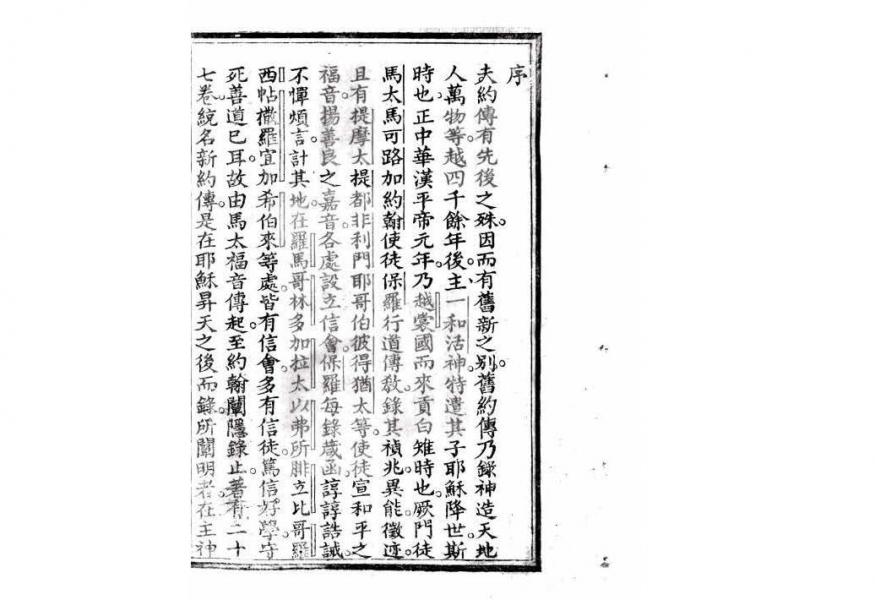 序
夫約傳有先後之殊。因而有舊新之別。舊約傳乃錄神造天地
人萬物等。越四千餘年後。主一和活神。特遣其子耶穌降世。斯
時也。正中華漢平帝元年。乃越裳國而來貢白雉時也。厥門徒
馬太馬可路加約翰使徒保羅行道傳教。錄其禎兆異能徵迹。
且有提摩太提都非利門耶哥伯彼得猶太等。使徒宣和平之
福音。揚善良之嘉音。各處設立信會。保羅每錄箴函。諄諄誥誡。
不憚煩言。計其地。在羅馬哥林多加拉太以弗所腓立比哥羅
西帖撒羅宜加希伯來等處。皆有信會。多有信徒。篤信好學。守
死善道已耳。故由馬太福音傳起。至約翰闡隱錄止。著有二十
七卷。統名新約傳。是在耶穌昇天之後而錄。所闡明者。在主神